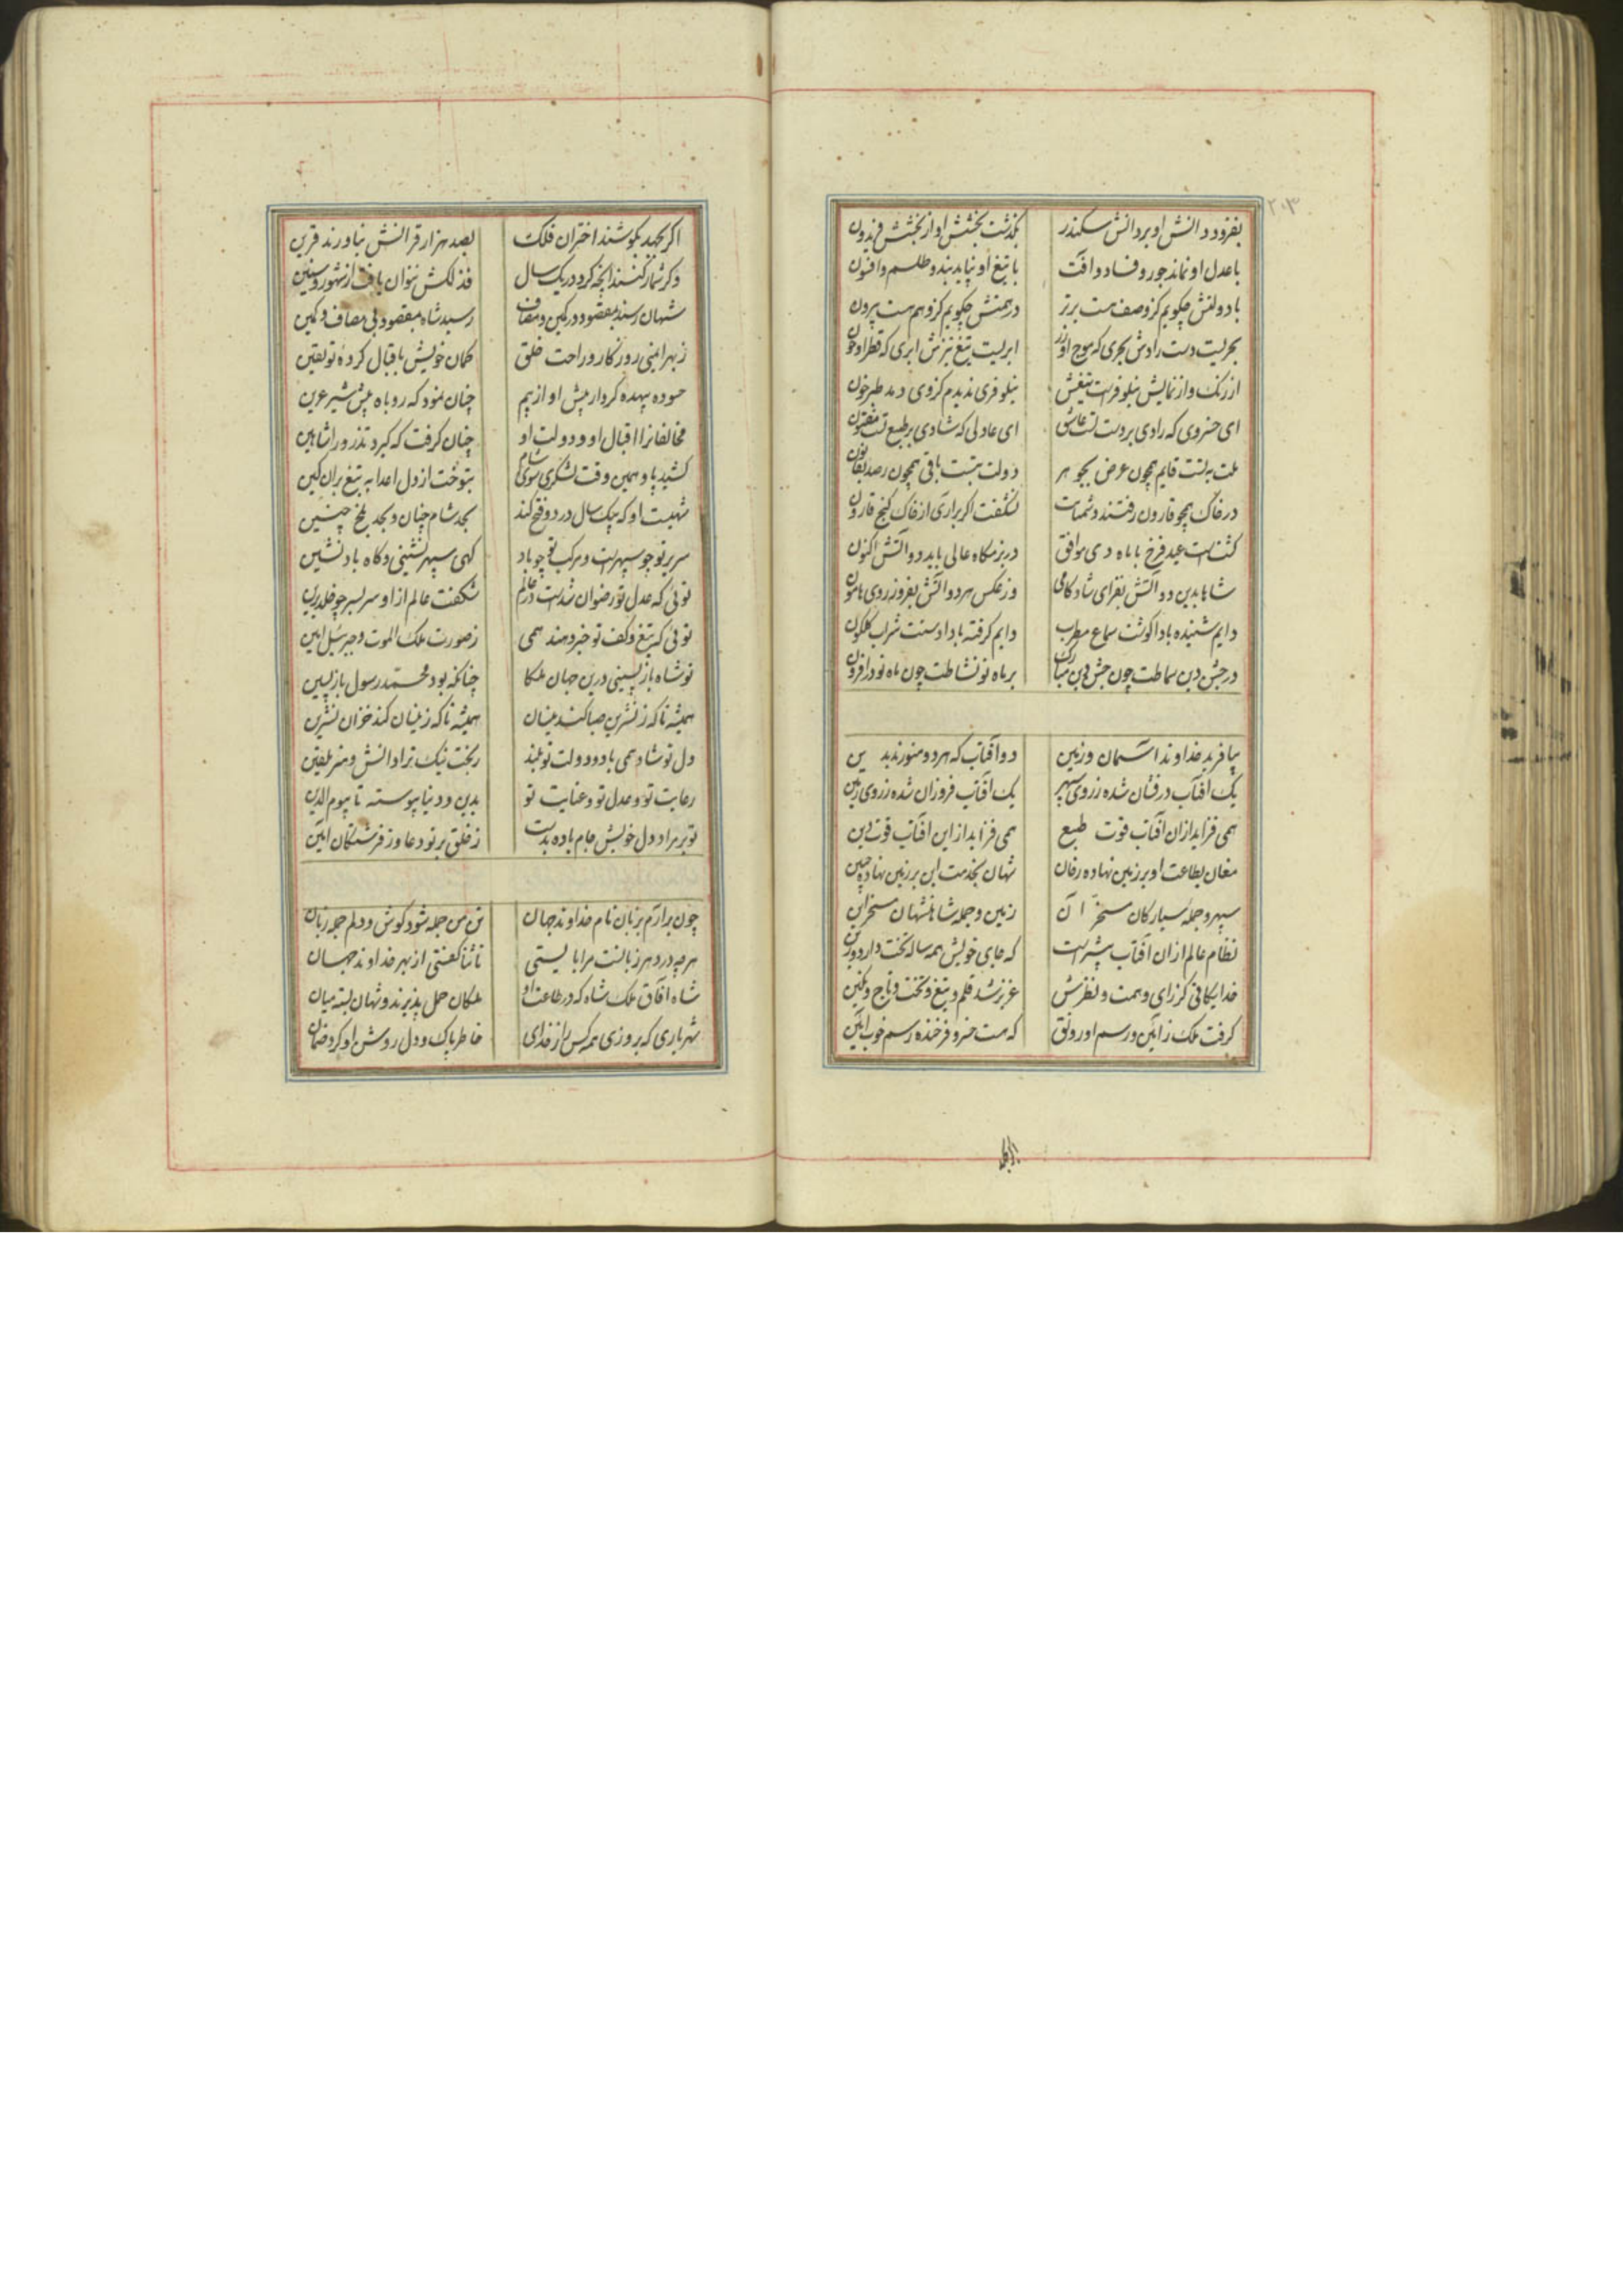 ۲۰۳
بفزود دانش او بر دانش سکندر بگذشت بخشش او از بخشش فریدون
با عدل او نماند جور و فساد و آفت با تیغ او نپاید بند و طلسم و افسون
با دولتش چکویم کز وصف هست برتر در همتش چکویم کز وهم هست بیرون
بحریست دست رادش بحری که موج او زر ابریست تیغ تیزش ابری که قطر او خون
از رنک و از نمایش نیلوفرست تیغش نیلوفری ندیدم کز وی دمد طبرخون
ای خسروی که رادی بر دست تست عاشق ای عادلی که شادی بر طبع تست مفتون
ملت به تست قایم همچون عرض بجوهر دولت بتست باقی همچون رصد بقانون
در خاک همچو قارون رفتند دشمنانت نشکفت اکر براری از خاک کنج قارون
کشتست عید فرخ با ماه دی موافق در بزمکاه عالی باید دو آتش اکنون
شاها بدین دو آتش بفزای شادکامی وز عکس هر دو آتش بفروز روی هامون
دایم شنیده بادا کوشت سماع مطرب دایم کرفته بادا دستت شراب کلکون
در جشن دین سماطت چون جشن دین مبارک بر ماه نو نشاطت چون ماه نو در افزون
بیافرید خداوند آسمان و زمین دو آفتاب که هر دو منورند بدین
یک آفتاب درفشان شده ز روی سپهر یک آفتاب فروزان شده ز روی زمین
همی فزاید ازان آفتاب قوت طبع همی فزاید ازین آفتاب قوت دین
مغان بطاعت او بر زمین نهاده رخان شهان بخدمت این بر زمین نهاده جبین
سپهر و جمله سیارکان مسخر آن زمین و جمله شاهنشهان مسخر این
نظام عالم ازان آفتاب بیشترست که جای خویش همه ساله تخت دارد وزین
خدایکانی کز رای و همت و نظرش عزیز شد قلم و تیغ و تخت و تاج و نکین
کرفت ملک ز آیین و رسم او رونق که هست خسرو فرخنده رسم خوب آیین
اکر بجهد بکوشند اختران فلک بصد هزار قرانش نیاورند قرین
وکر شمار کنند آنچه کرد در یک سال فذلکش نتوان یافت از شهور و سنین
شهان رسند بمقصود در کمین و مصاف رسید شاه بمقصود بی مصاف و کمین
ز بهر ایمنی روزکار و راحت خلق کمان خویش باقبال کرده تو یقین
حسود بیهده کردار پیش او از بیم چنان نمود که روباه پیش شیر عرین
مخالفانرا اقبال او و دولت او چنان کرفت که کیرد تذرو را شاهین
کشید پار همین وقت لشکری سوی شام بتوخت از دل اعدا به تیغ بران کین
شهیست او که بیک سال در دو فتح کند بحد شام چنان و بحد بلخ چنین
سریر تو چو سپهرست و مرکب تو چو باد کهی سپهر نشینی و کاه باد نشین
توئی که عدل تو رضوان شدست در عالم شکفت عالم ازو سر بسر چو خلد برین
توئی که تیغ و کف تو خبر دهند همی ز صورت ملک الموت و جبرئیل امین
تو شاه بازپسینی درین جهان ملکا چنانکه بود محمد رسول بازپسین
همیشه تا که ز نسرین صبا کند نیسان همیشه تا که ز نیسان کند خزان نسرین
دل تو شاد همی باد و دولت تو بلند ز بخت نیک ترا دانش و هنر تلقین
رعایت تو و عدل تو و عنایت تو بدین و دنیا پیوسته تا بیوم الدین
تو بر مراد دل خویش جام باده بدست ز خلق بر تو دعا وز فرشتکان آمین
چون برارم بزبان نام خداوند جهان تن من جمله شود کوش و دلم جمله زبان
هر چه در دهر زبانست مرا بایستی تا ثنا کفتمی از بهر خداوند جهان
شاه آفاق ملک شاه که در طاعت او ملکان حمل پذیرند و شهان بسته میان
شهریاری که بروزی همه کس را ز خدای خاطر پاک و دل روشن او کرد ضمان